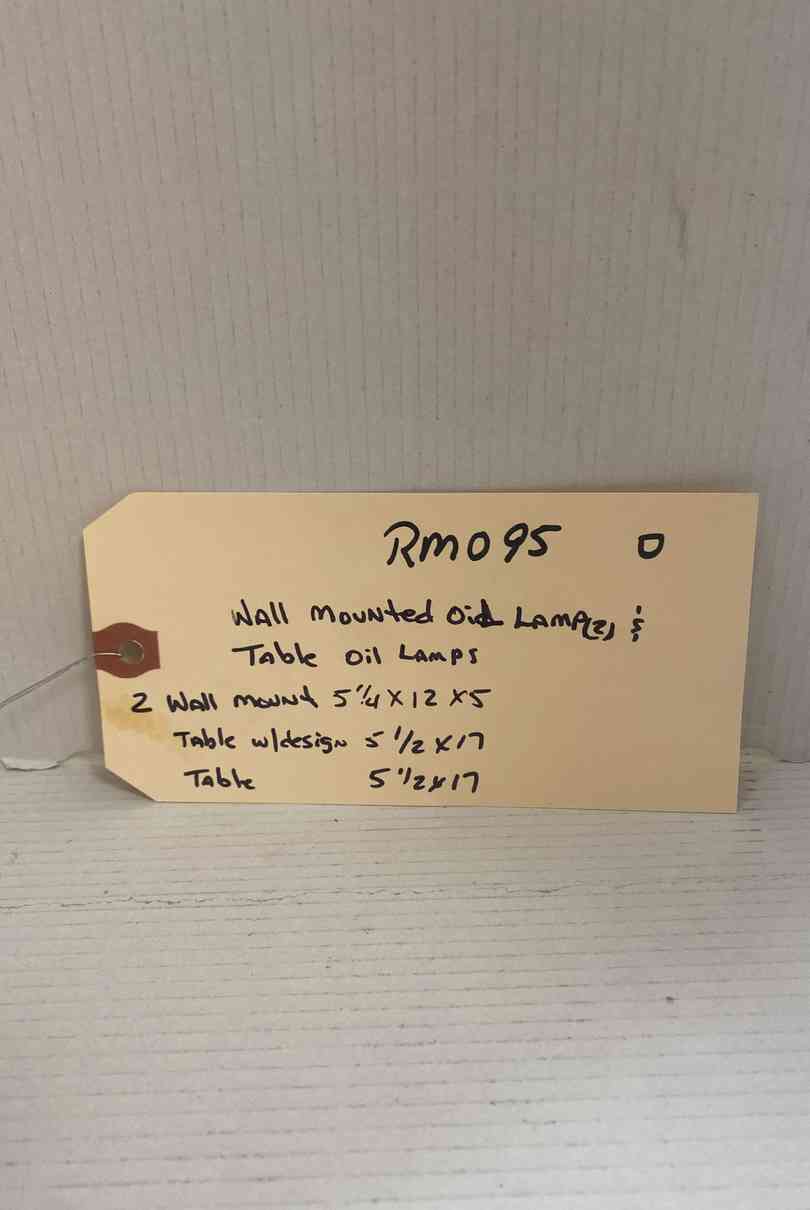 RM095 O
Wall Mounted Oil Lamp(2) &
Table Oil Lamps
2 Wall mount 5 1/4 X 12 X 5
Table w/design 5 1/2 X 17
Table 5 1/2 X 17